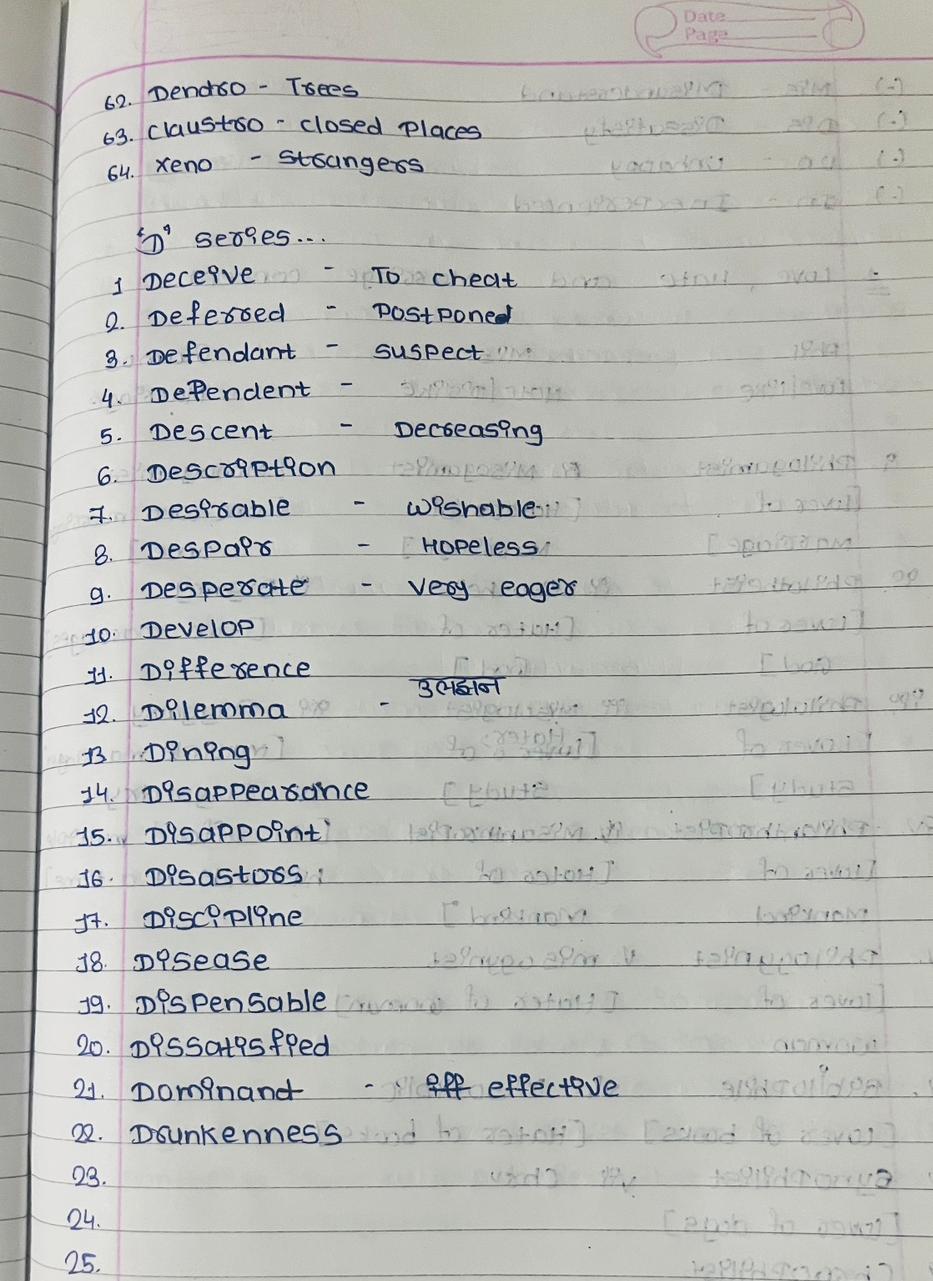 Date
Page
62. Dendro - Trees
63. Claustro - closed Places
64. Xeno - Strangers
'D' series...
1 Deceive - To cheat
2. Deferred - Postponed
3. Defendant - suspect
4. Dependent -
5. Descent - Decreasing
6. Description
7. Desirable - wishable
8. Despair - Hopeless
9. Desperate - very eager
10. Develop
11. Difference
12. Dilemma - उलझन
13 Dining
14. Disappearance
15. Disappoint
16. Disastors
17. Discipline
18. Disease
19. Dispensable
20. Dissatisfied
21. Dominand - effective
22. Drunkenness
23.
24.
25.